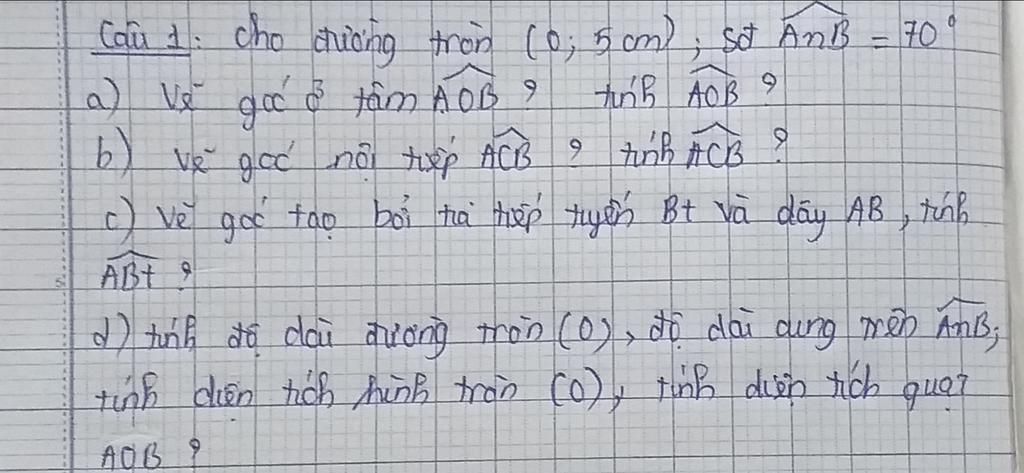 Câu 1: Cho đường tròn (O; 5 cm), sđ AnB = 70°
a) Vẽ góc ở tâm AOB ? tính AOB ?
b) Vẽ góc nội tiếp ACB ? tính ACB ?
c) Vẽ góc tạo bởi tia tiếp tuyến Bt và dây AB, tính
ABt ?
d) tính độ dài đường tròn (O), độ dài cung tròn AnB,
tính diện tích hình tròn (O), tính diện tích quạt
AOB ?